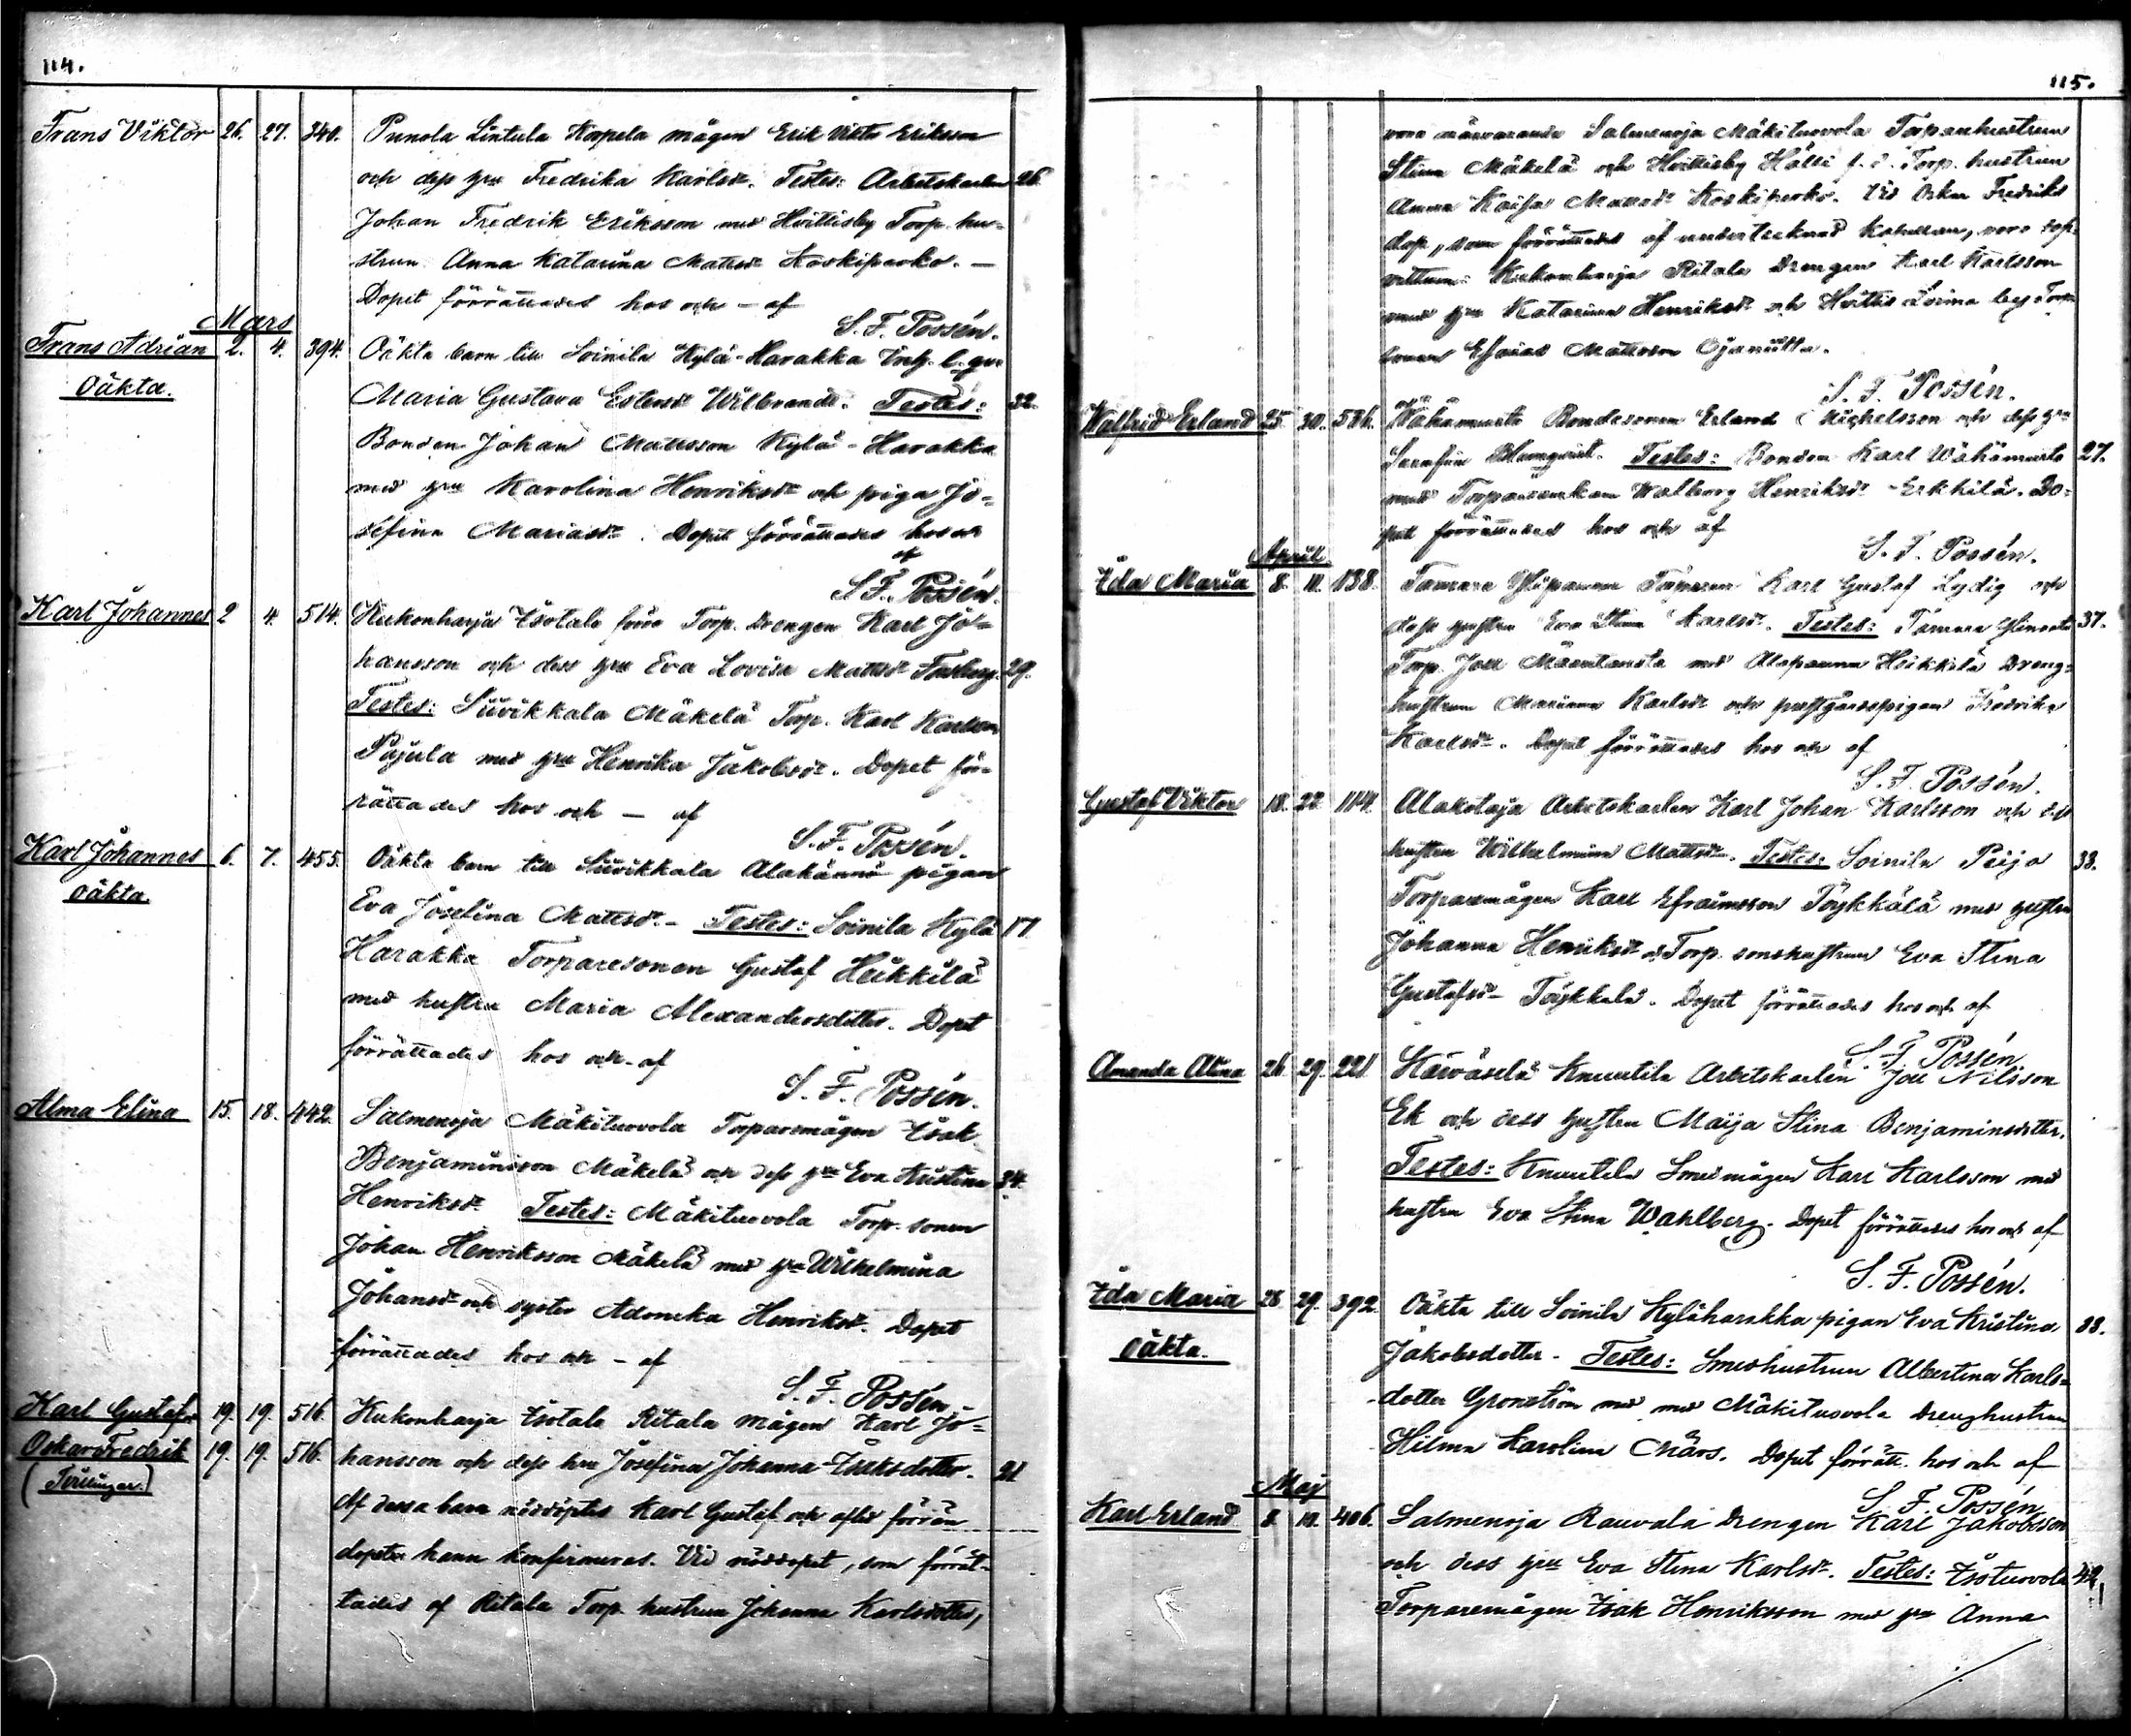 114.
Frans Viktor 26. 27. 340. Punola Lintula Korpela mågen Erik Viktor Eriksson
och dess hu Fredrika Karlsdr. Testes: Arbetskarlen 26.
Johan Fredrik Eriksson med Hvittisby Torp. hu-
strun Anna Katarina Mattsdr Koskiperko. —
Dopet förrättades hos och — af
S. F. Possén.
Mars
Frans Adrian 2. 4. 394. Oäkta barn till Soinila Kylä-Harakka
Oäkta.
Maria Gustava Estersdr Wilbrandt. Testes: 32.
Bonden Johan Mattsson Kylä-Harakka
med hu Karolina Henriksdr och piga Jo-
sefina Mariasdr. Dopet förrättades hos och
af
S. F. Possén.
Karl Johannes 2 4. 514. Kukonharja Isotalo förre Torp. Drengen Karl Jo-
hansson och dess hu Eva Lovisa Mattsdr Forsberg. 29.
Testes: Suvikkala Mäkelä Torp. Karl Karlsson
Pajula med hu Henrika Jakobsdr. Dopet för-
rättades hos och — af
S. F. Possén.
Karl Johannes 6. 7. 455. Oäkta barn till Suvikkala Alakännö pigan
Oäkta.
Eva Josefina Mattsdr. - Testes: Soinila Kylä 17.
Harakka Torparesonen Gustaf Heikkilä
med hustru Maria Alexandersdotter. Dopet
förrättades hos och - af
S. F. Possén.
Alma Elina 15. 18. 442. Salmenoja Mäkituovola Torparemågen Isak
Benjaminsson Mäkelä och dess hu Eva Kristina 34.
Henriksdr Testes: Mäkituovola Torp. sonen
Johan Henriksson Mäkelä med hu Wilhelmina
Johansdr och syster Adorucka Henriksdr. Dopet
förrättades hos och - af
S. F. Possén
Karl Gustaf o 19. 19. 516. Kukonharja Isotalo Ritala mågen Karl Jo-
Oskar Fredrik 19. 19. 516. hansson och dess hu Josefina Johanna Isaksdotter. 21
(Tvillingar.)
Af dessa barn nöddöptes Karl Gustaf och afled förrän
dopet kunde konfirmeras. Vid nöddopet, som förrät-
tades af Ritala Torp. hustrun Johanna Karlsdotter,
115.
voro närvarande Salmenoja Mäkituovola Torparehustrun
Stina Mäkelä och Hvittisby Hölli f. d. Torp. hustrun
Anna Kaisa Mattsdr Koskiperko. Vid Oskar Fredriks
dop, som förrättades af undertecknad voro dop-
vittnen: Kukonharja Ritala Drengen Karl Karlsson
med hu Katarina Henriksdr och Hvittis Torp
Esaias Mattsson Ojaniitta.
S. F. Possén.
Walfrid Erland 25. 30. 586. Wähämurto Bondesonen Erland Michelsson och dess hu
Serafina Blomqvist. Testes: Bonden Karl Wähämurto 27.
med Torpareenkan Walborg Henriksdr Erkkilä. Do-
pet förrättades hos och af
S. F. Possén.
April.
Ida Maria 8. 11. 138. Tamare Torparen Karl Gustaf Lydig och
dess hustru Eva Stina Karlsdr. Testes: Tamare 37.
Torp. Joel med Heikkilä Dreng-
hustrun Marina Karlsdr och prestgårdspigan Fredrika
Karlsdr. Dopet förrättades hos och af
S. F. Possén.
Gustaf Viktor 18. 22 114. Alakotaja Arbetskarlen Karl Johan Karlsson och dess
hustru Wilhelmina Mattsdr. Testes: Soinila Peijo 33.
Torparemågen Karl Efraimsson Töykkälä med hustru
Johanna Henriksdr o. Torp. sonshustrun Eva Stina
Gustafsdr Töykkälä. Dopet förrättades hos och af
S. F. Possén
Amanda Alina 26. 29. 221. Karväselä Knuutila Arbetskarlen Joel Nilsson
Ek och dess hustru Maija Stina Benjaminsdotter.
Testes: Knuutila Smedmågen Karl Karlsson med
hustru Eva Stina Wahlberg. Dopet förrättades hos och af
S. F. Possén.
Ida Maria 28 29. 392. Oäkta till Soinila Kyläharakka pigan Eva Kristina 33.
Oäkta.
Jakobsdotter. Testes: Smedhustrun Albertina Karls-
dotter Grönström med med Mäkituovola Drenghustrun
Hilma Karolina Märs. Dopet förrätt. hos och af
S. F. Possén
Maj
Karl Erland 8. 10. 406. Salmenoja Rauvola Drengen Karl Jakobsson
och dess hu Eva Stina Karlsdr. Testes: Isotuovola 42.
Torparemågen Isak Henriksson med hu Anna